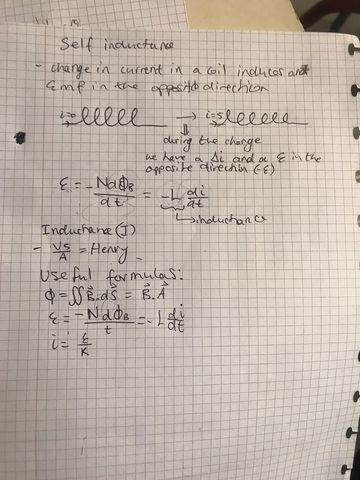 Self inductance
- change in current in a coil induces an
emf in the opposite direction
i=0 → i=5
during the change
we have a Δi and a ε in the
opposite direction (-ε)
ε = -NdΦB/dt = -L di/dt
→ inductance
Inductance (I)
- Vs/A = Henry
Useful formulas:
Φ = ∬B⃗.dS⃗ = B⃗.A⃗
ε = -NdΦB/t = -L di/dt
i = ε/R